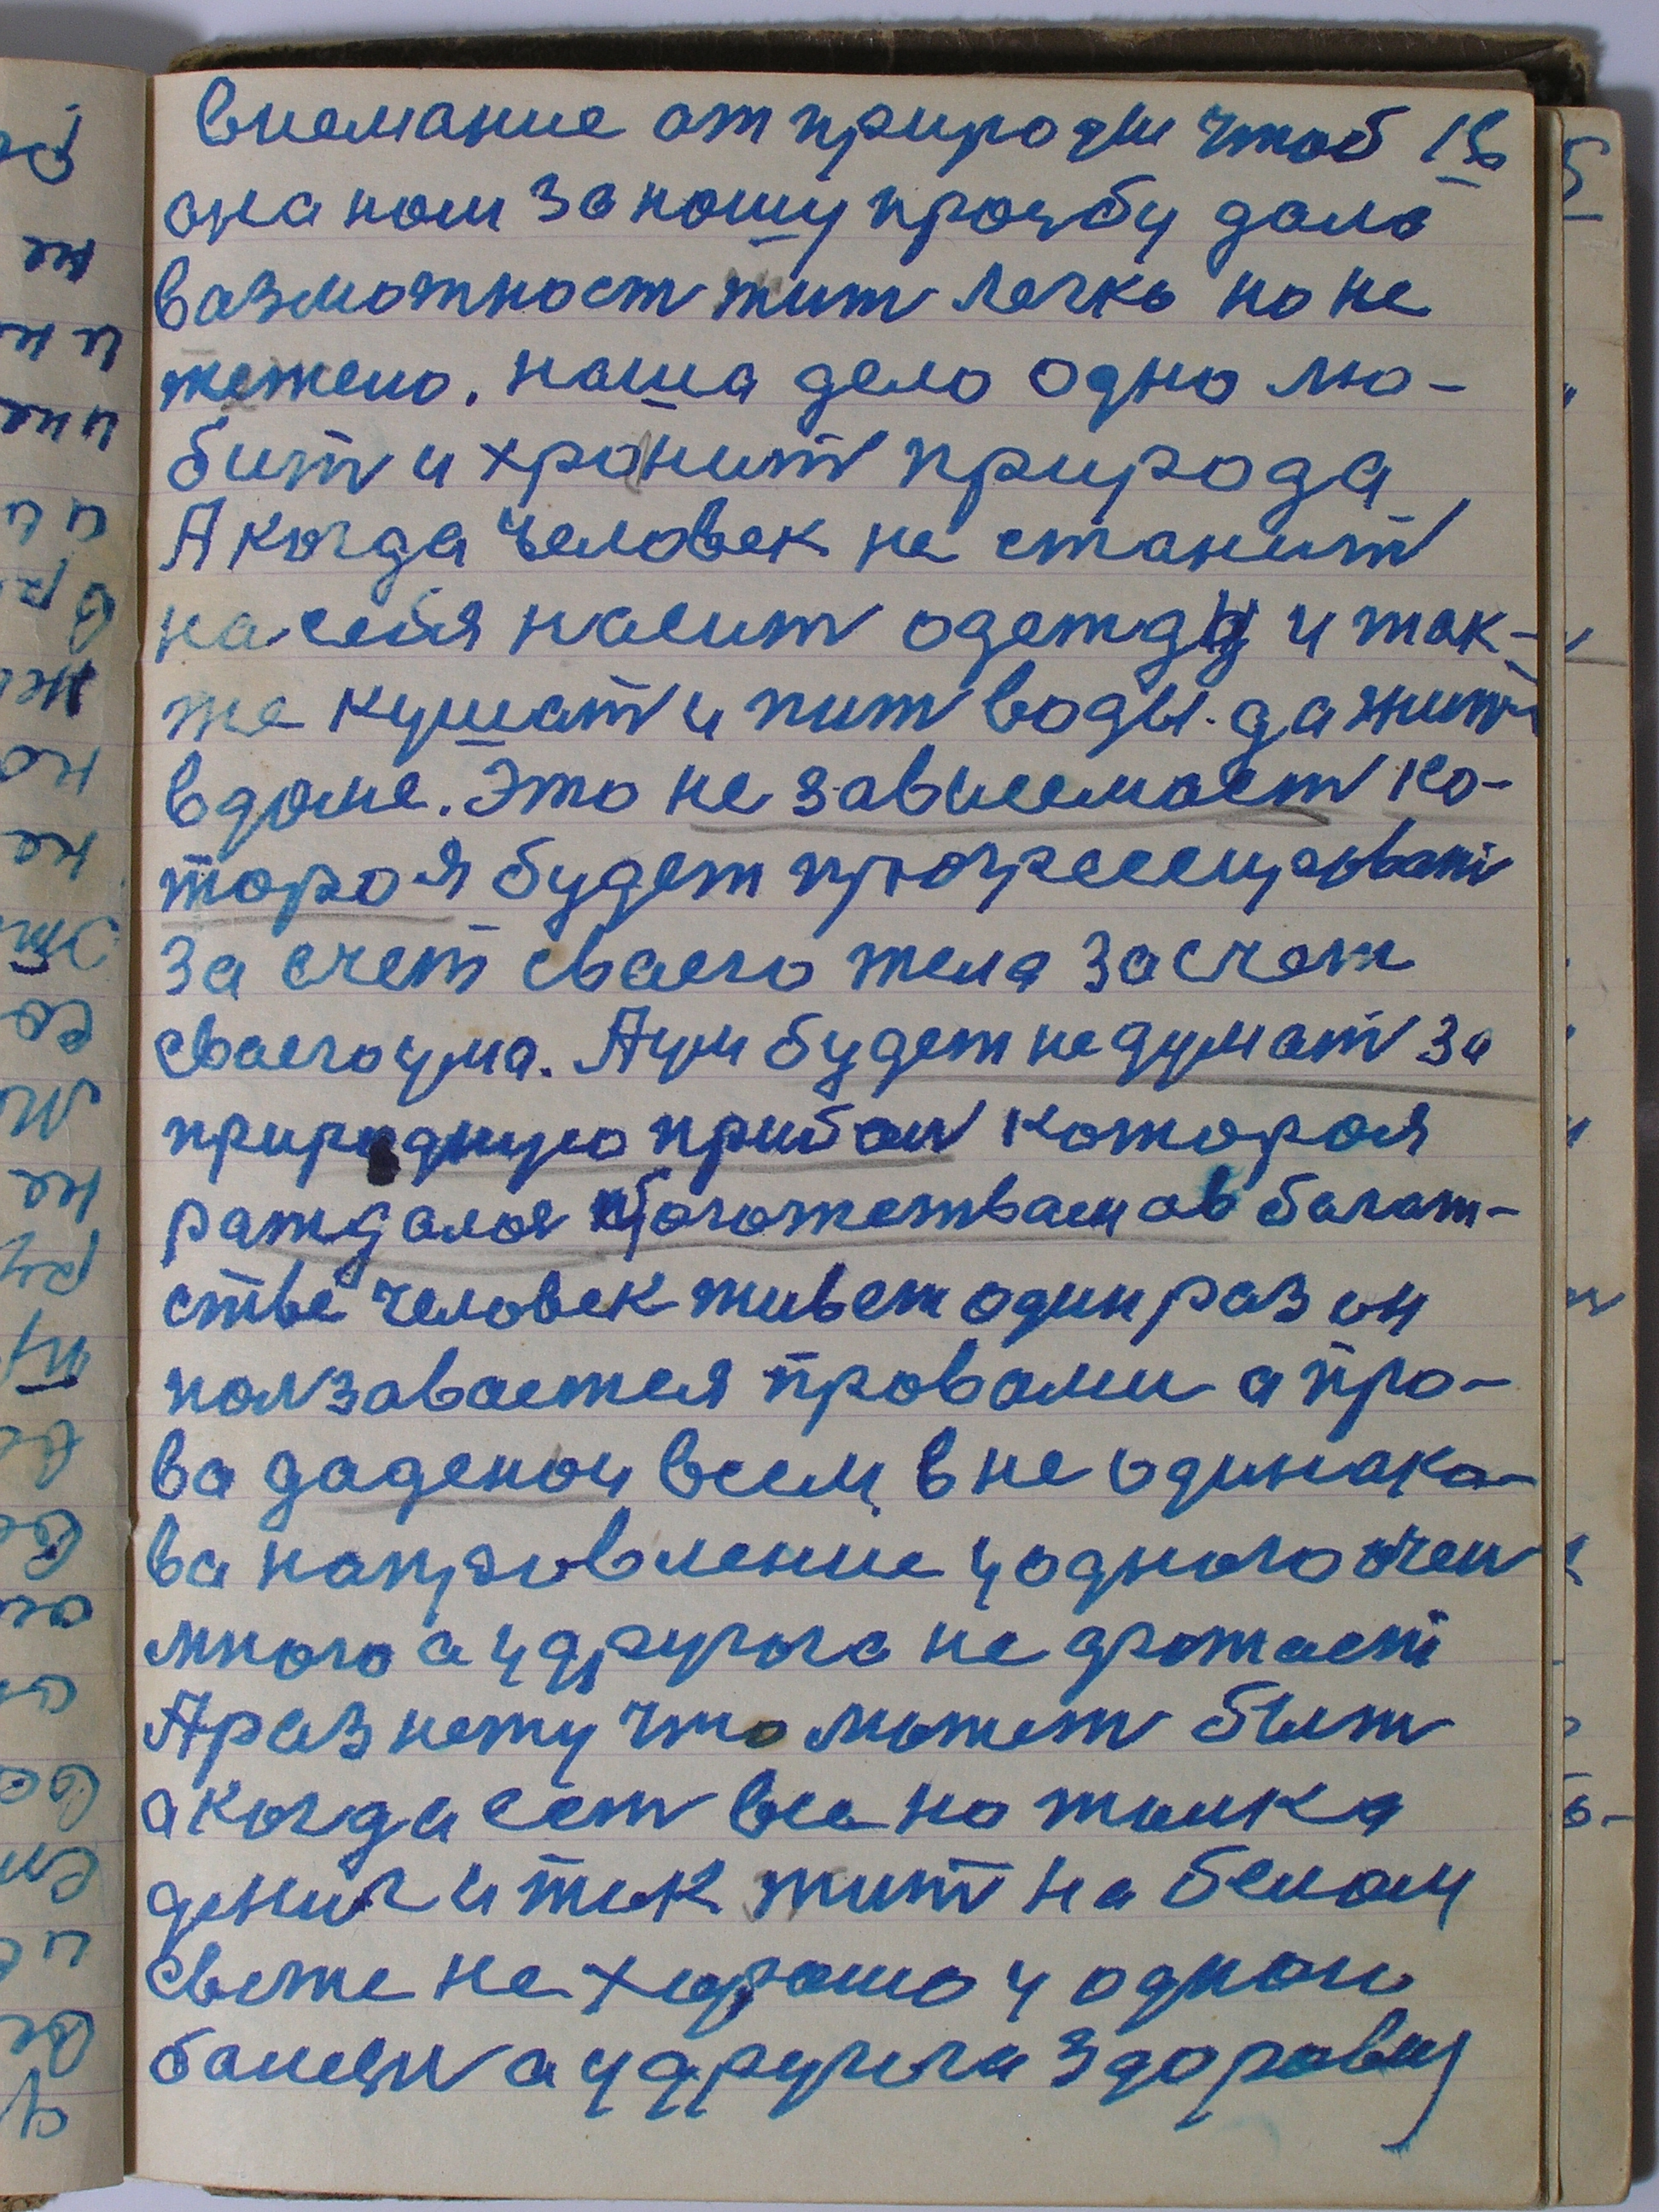 внемание от природы чтоб 16
она нам за нашу прозьбу дала
вазможност жит легко но не
тежело. наша дело одно лю-
бит и хронит природа
А когда человек не станит
на себя насит одежды и так-
же кушат и пит воды. да жить
в доме. Это не завнсемаст ко-
торая будет прогрессировать
за счет сваего тела за счет
сваего ума. А ум будет не думат за
природную прибыл которая
раждалоя в багат-
стве человек живет один раз он
ползавается правами а пра-
ва даденои всем в не одинака-
ва направление у одного очен
много а у другога не хватаеть
А раз нету что может быт
а когда ест все но толка
дених и так жит на белом
свете не хорошо у одного
балезн а у другога здоровия